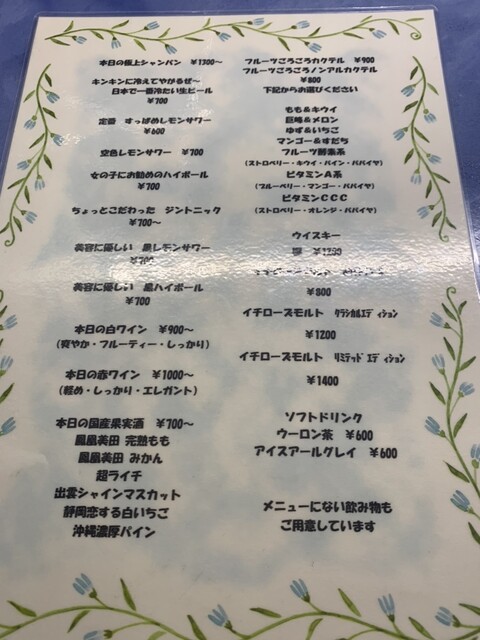 本日の極上シャンパン ¥1300～
キンキンに冷えてやがるぜ～
日本で一番冷たい生ビール
¥700
定番 すっぱめレモンサワー
¥600
空色レモンサワー ¥700
女の子にお勧めのハイボール
¥700
ちょっとこだわった ジントニック
¥700～
美容に優しい 黒レモンサワー
¥700
美容に優しい 黒ハイボール
¥700
本日の白ワイン ¥900～
(爽やか・フルーティー・しっかり)
本日の赤ワイン ¥1000～
(軽め・しっかり・エレガント)
本日の国産果実酒 ¥700～
鳳凰美田 完熟もも
鳳凰美田 みかん
超ライチ
出雲シャインマスカット
静岡恋する白いちご
沖縄濃厚パイン
フルーツごろごろカクテル ¥900
フルーツごろごろノンアルカクテル
¥800
下記からお選びください
もも＆キウイ
巨峰＆メロン
ゆず＆いちご
マンゴー＆すだち
フルーツ酵素系
(ストロベリー・キウイ・パイン・パパイヤ)
ビタミンA系
(ブルーベリー・マンゴー・パパイヤ)
ビタミンCCC
(ストロベリー・オレンジ・パパイヤ)
ウイスキー
¥1200
¥800
イチローズモルト クラシカルエディション
¥1200
イチローズモルト リミテッドエディション
¥1400
ソフトドリンク
ウーロン茶 ¥600
アイスアールグレイ ¥600
メニューにない飲み物も
ご用意しています